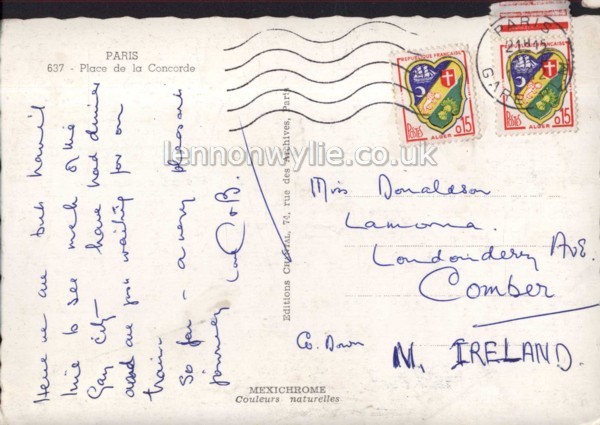 PARIS
637 - Place de la Concorde
Here we are but haven't
time to see much of the
Gay city - have had dinner
and are just waiting for our
train.
So far - a very pleasant
journey Love C & B.
Editions CHANTAL, 74, rue des Archives, Paris
MEXICHROME
Couleurs naturelles
REPUBLIQUE FRANÇAISE
POSTES 0,15
ALGER
REPUBLIQUE FRANÇAISE
POSTES 0,15
ALGER
PARIS
GARE
lennonwylie.co.uk
Miss Donaldson
Lamorna
Londonderry Ave.
Comber
Co. Down
N. IRELAND.